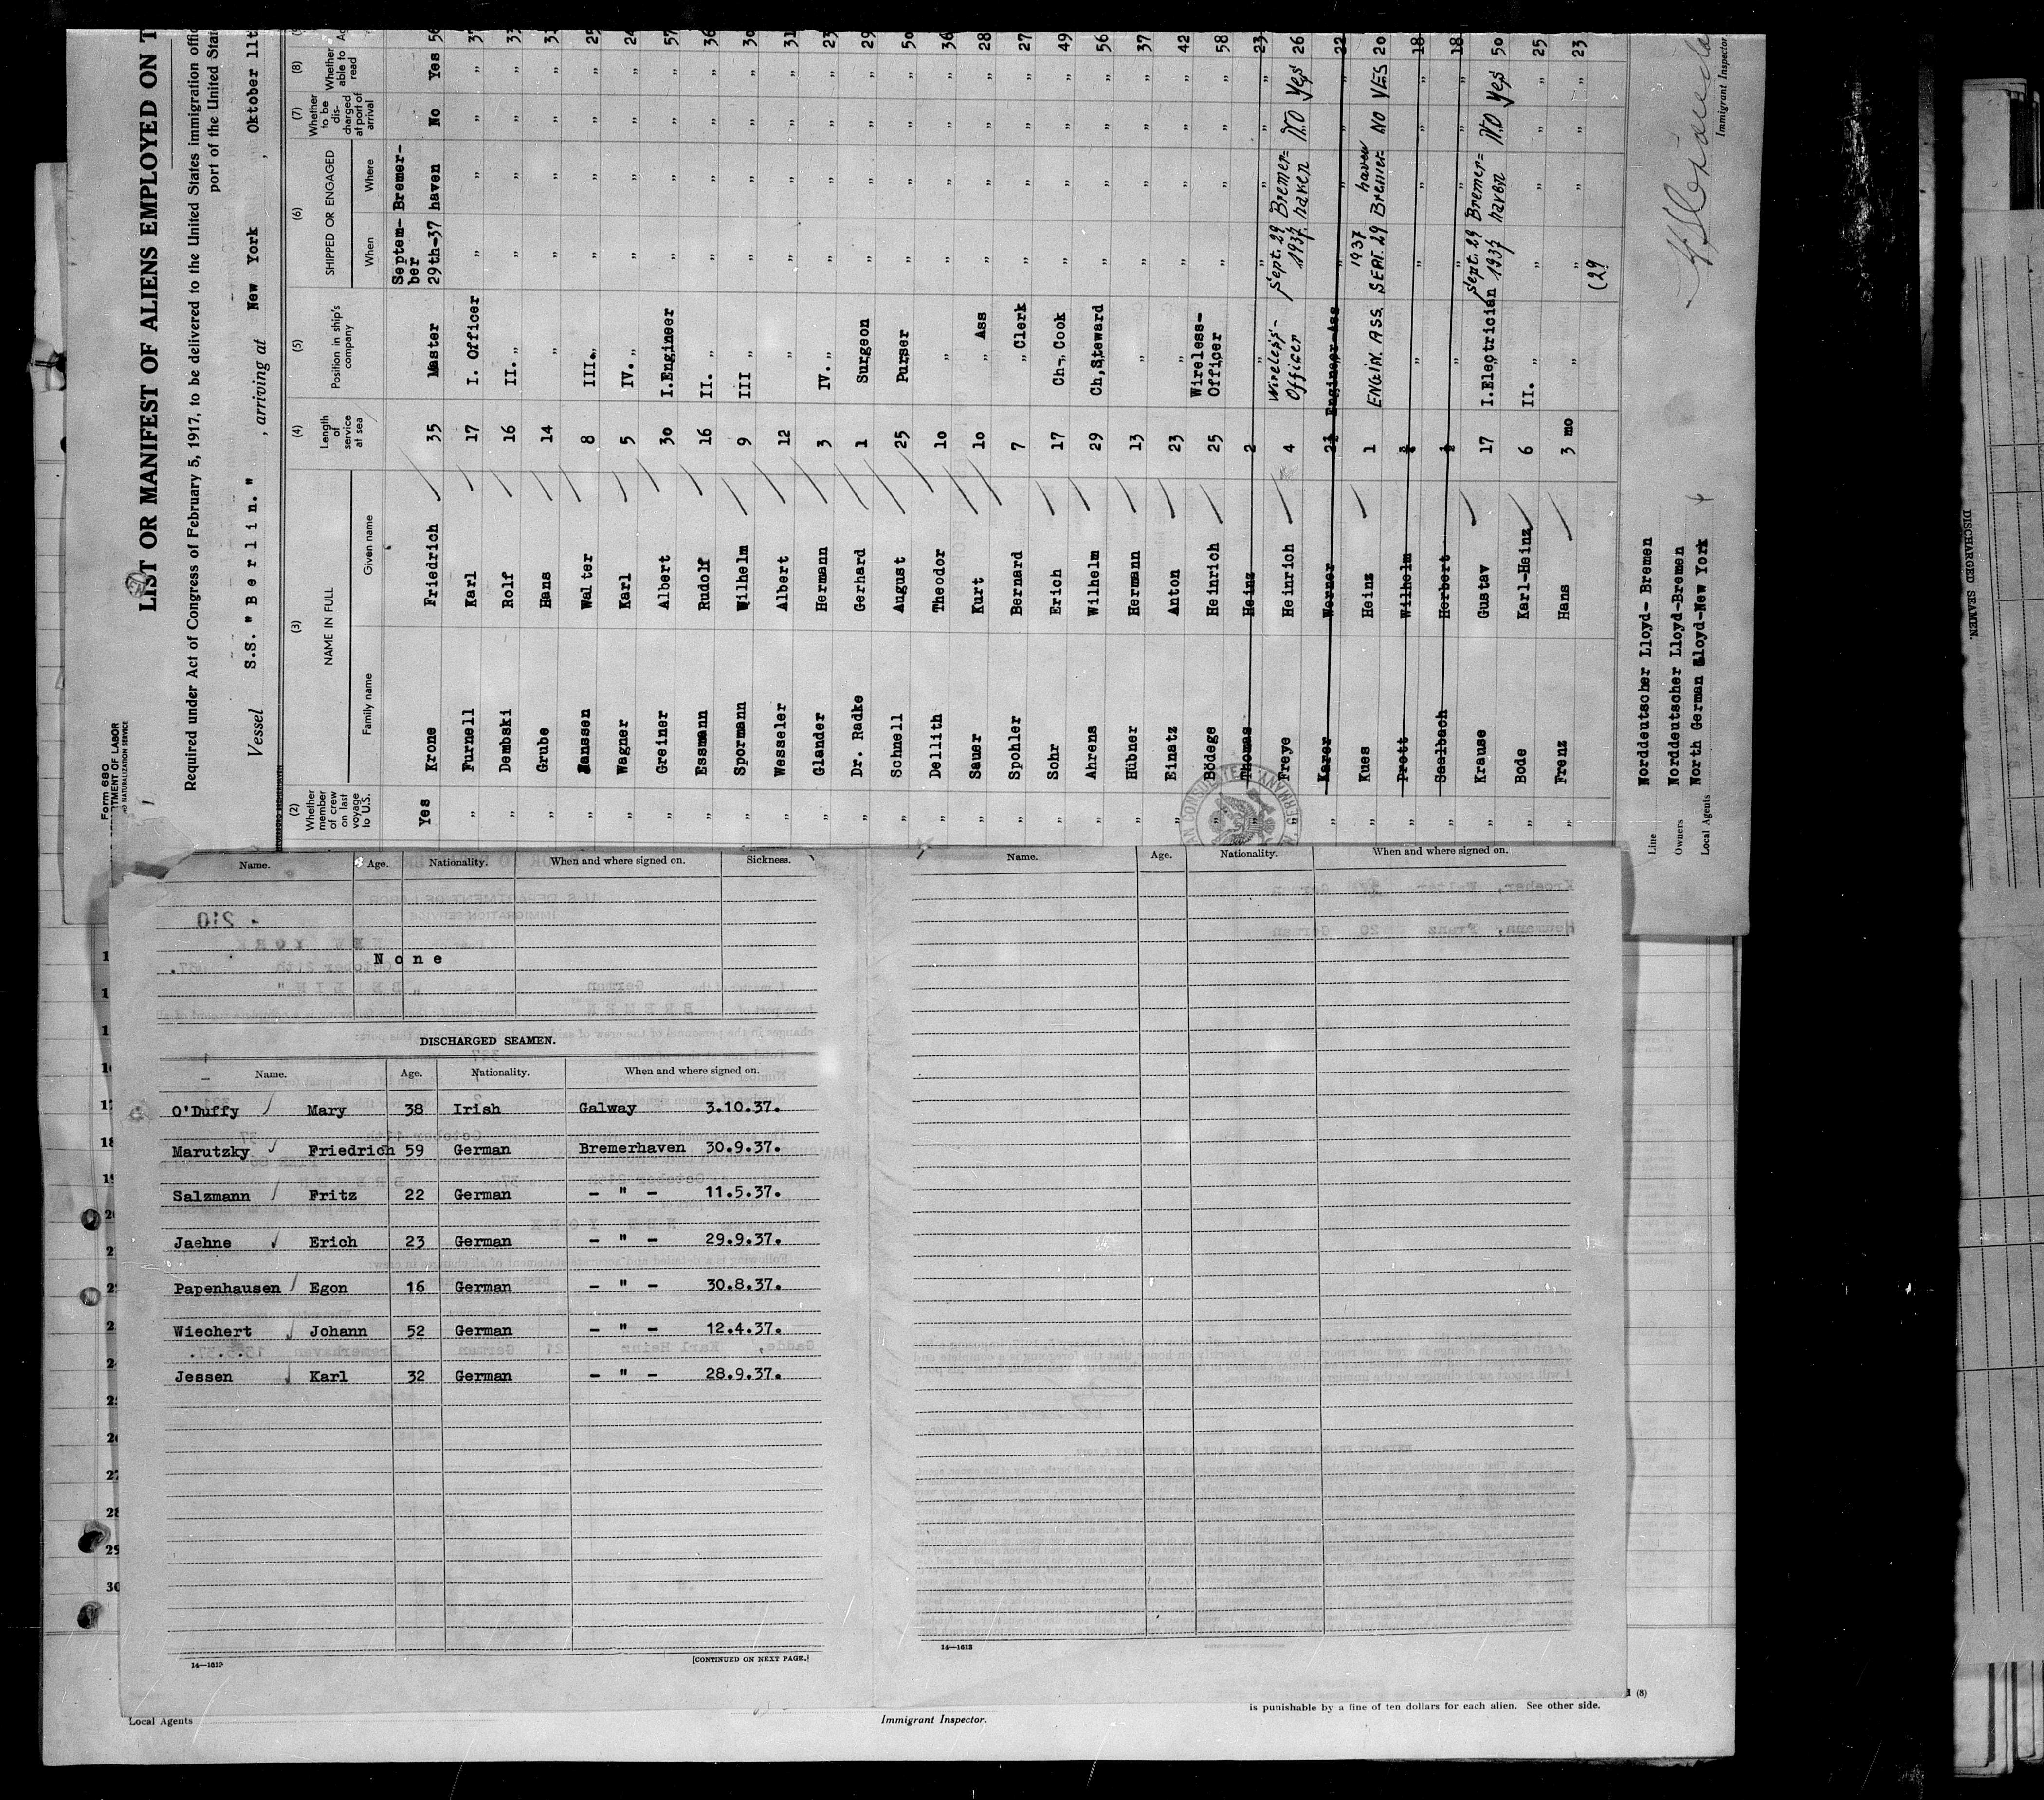 Form 680
TMENT OF LABOR
ND NATURALIZATION SERVICE
LIST OR MANIFEST OF ALIENS EMPLOYED ON T
Required under Act of Congress of February 5, 1917, to be delivered to the United States immigration offic
port of the United Stat
Vessel S.S. "Berlin." , arriving at New York , Oktober 11t
(2) (3) (4) (5) (6) (7) (8)
Whether member of crew on last voyage to U.S. NAME IN FULL Length of service at sea Position in ship's company SHIPPED OR ENGAGED Whether to be discharged at port of arrival Whether able to read
Family name Given name When Where
Yes Krone Friedrich 35 Master September 29th-37 Bremerhaven No Yes 56
" Furnell Karl 17 I. Officer " " " " 37
" Dembski Rolf 16 II. " " " " " 33
" Grube Hans 14 " " " " "
" Janssen Walter 8 III. " " " " " 25
" Wagner Karl 5 IV. " " " " " 24
" Greiner Albert 30 I.Engineer " " " " 57
" Essmann Rudolf 16 II. " " " " " 36
" Spormann Wilhelm 9 III " " " " " 30
" Wesseler Albert 12 " " " " " 31
" Glander Hermann 3 IV. " " " " " 23
" Dr. Radke Gerhard 1 Surgeon " " " " 29
" Schnell August 25 Purser " " " " 50
" Dellith Theodor 10 " " " " " 36
" Sauer Kurt 10 " Ass " " " " 28
" Spohler Bernard 7 " Clerk " " " " 27
" Sohr Erich 17 Ch-, Cook " " " " 49
" Ahrens Wilhelm 29 Ch,Steward " " " " 56
" Hübner Hermann 13 " " " " " 37
" Einatz Anton 23 " " " " " 42
" Bödege Heinrich 25 Wireless-Officer " " " " 58
" Thomas Heinz 2 " " " " " 23
" Freye Heinrich 4 Wireless-Officer Sept. 29 1937. Bremer=haven NO Yes 26
" Karer Werner Engineer-Ass " " " " 22
" Kues Heinz 1 ENGIN. ASS. SEPT. 29 1937 Bremerhaven NO YES 20
" Prott Wilhelm " " " " " 18
" Saarbach Herbert ½ " " " " " 18
" Krause Gustav 17 I.Electrician Sept. 29 1937 Bremer=haven NO Yes 50
" Bode Karl-Heinz 6 II. " " " " " 25
" Frenz Hans 3 mo " " " " " 23
(29
Line Norddeutscher Lloyd- Bremen
Owners Norddeutscher Lloyd-Bremen
Local Agents North German Lloyd-New York
Immigrant Inspector
Name. Age. Nationality. When and where signed on. Sickness.
None
DISCHARGED SEAMEN.
Name. Age. Nationality. When and where signed on.
O'Duffy Mary 38 Irish Galway 3.10.37.
Marutzky Friedrich 59 German Bremerhaven 30.9.37.
Salzmann Fritz 22 German - " - 11.5.37.
Jaehne Erich 23 German - " - 29.9.37.
Papenhausen Egon 16 German - " - 30.8.37.
Wiechert Johann 52 German - " - 12.4.37.
Jessen Karl 32 German - " - 28.9.37.
14—1613
[CONTINUED ON NEXT PAGE.]
Name. Age. Nationality. When and where signed on.
14—1613
Local Agents
Immigrant Inspector.
is punishable by a fine of ten dollars for each alien. See other side.
(8)
DISCHARGED SEAMEN.